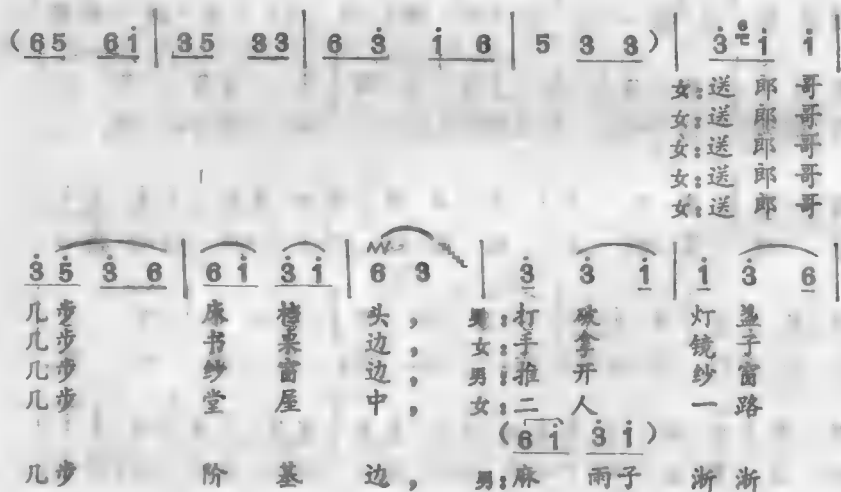 (65 6i̇ | 35 33 | 6 3̇ i̇ 6 | 5 3 3) | 3̇ 6 i̇ i̇ |
女:送 郎 哥
女:送 郎 哥
女:送 郎 哥
女:送 郎 哥
女:送 郎 哥
3̇ 5̇ 3̇ 6 | 6 i̇ 3̇ i̇ | 6 3 | 3̇ 3̇ i̇ | i̇ 3̇ 6 |
几步 床 头, 男:打 破 灯 盏
几步 书 桌 边, 女:手 拿 镜 子
几步 纱 窗 边, 男:推 开 纱 窗
几步 堂 屋 中, 女:二 人 一 路
(6 i̇ 3̇ i̇)
几步 阶 基 边, 男:麻 雨子 渐 渐